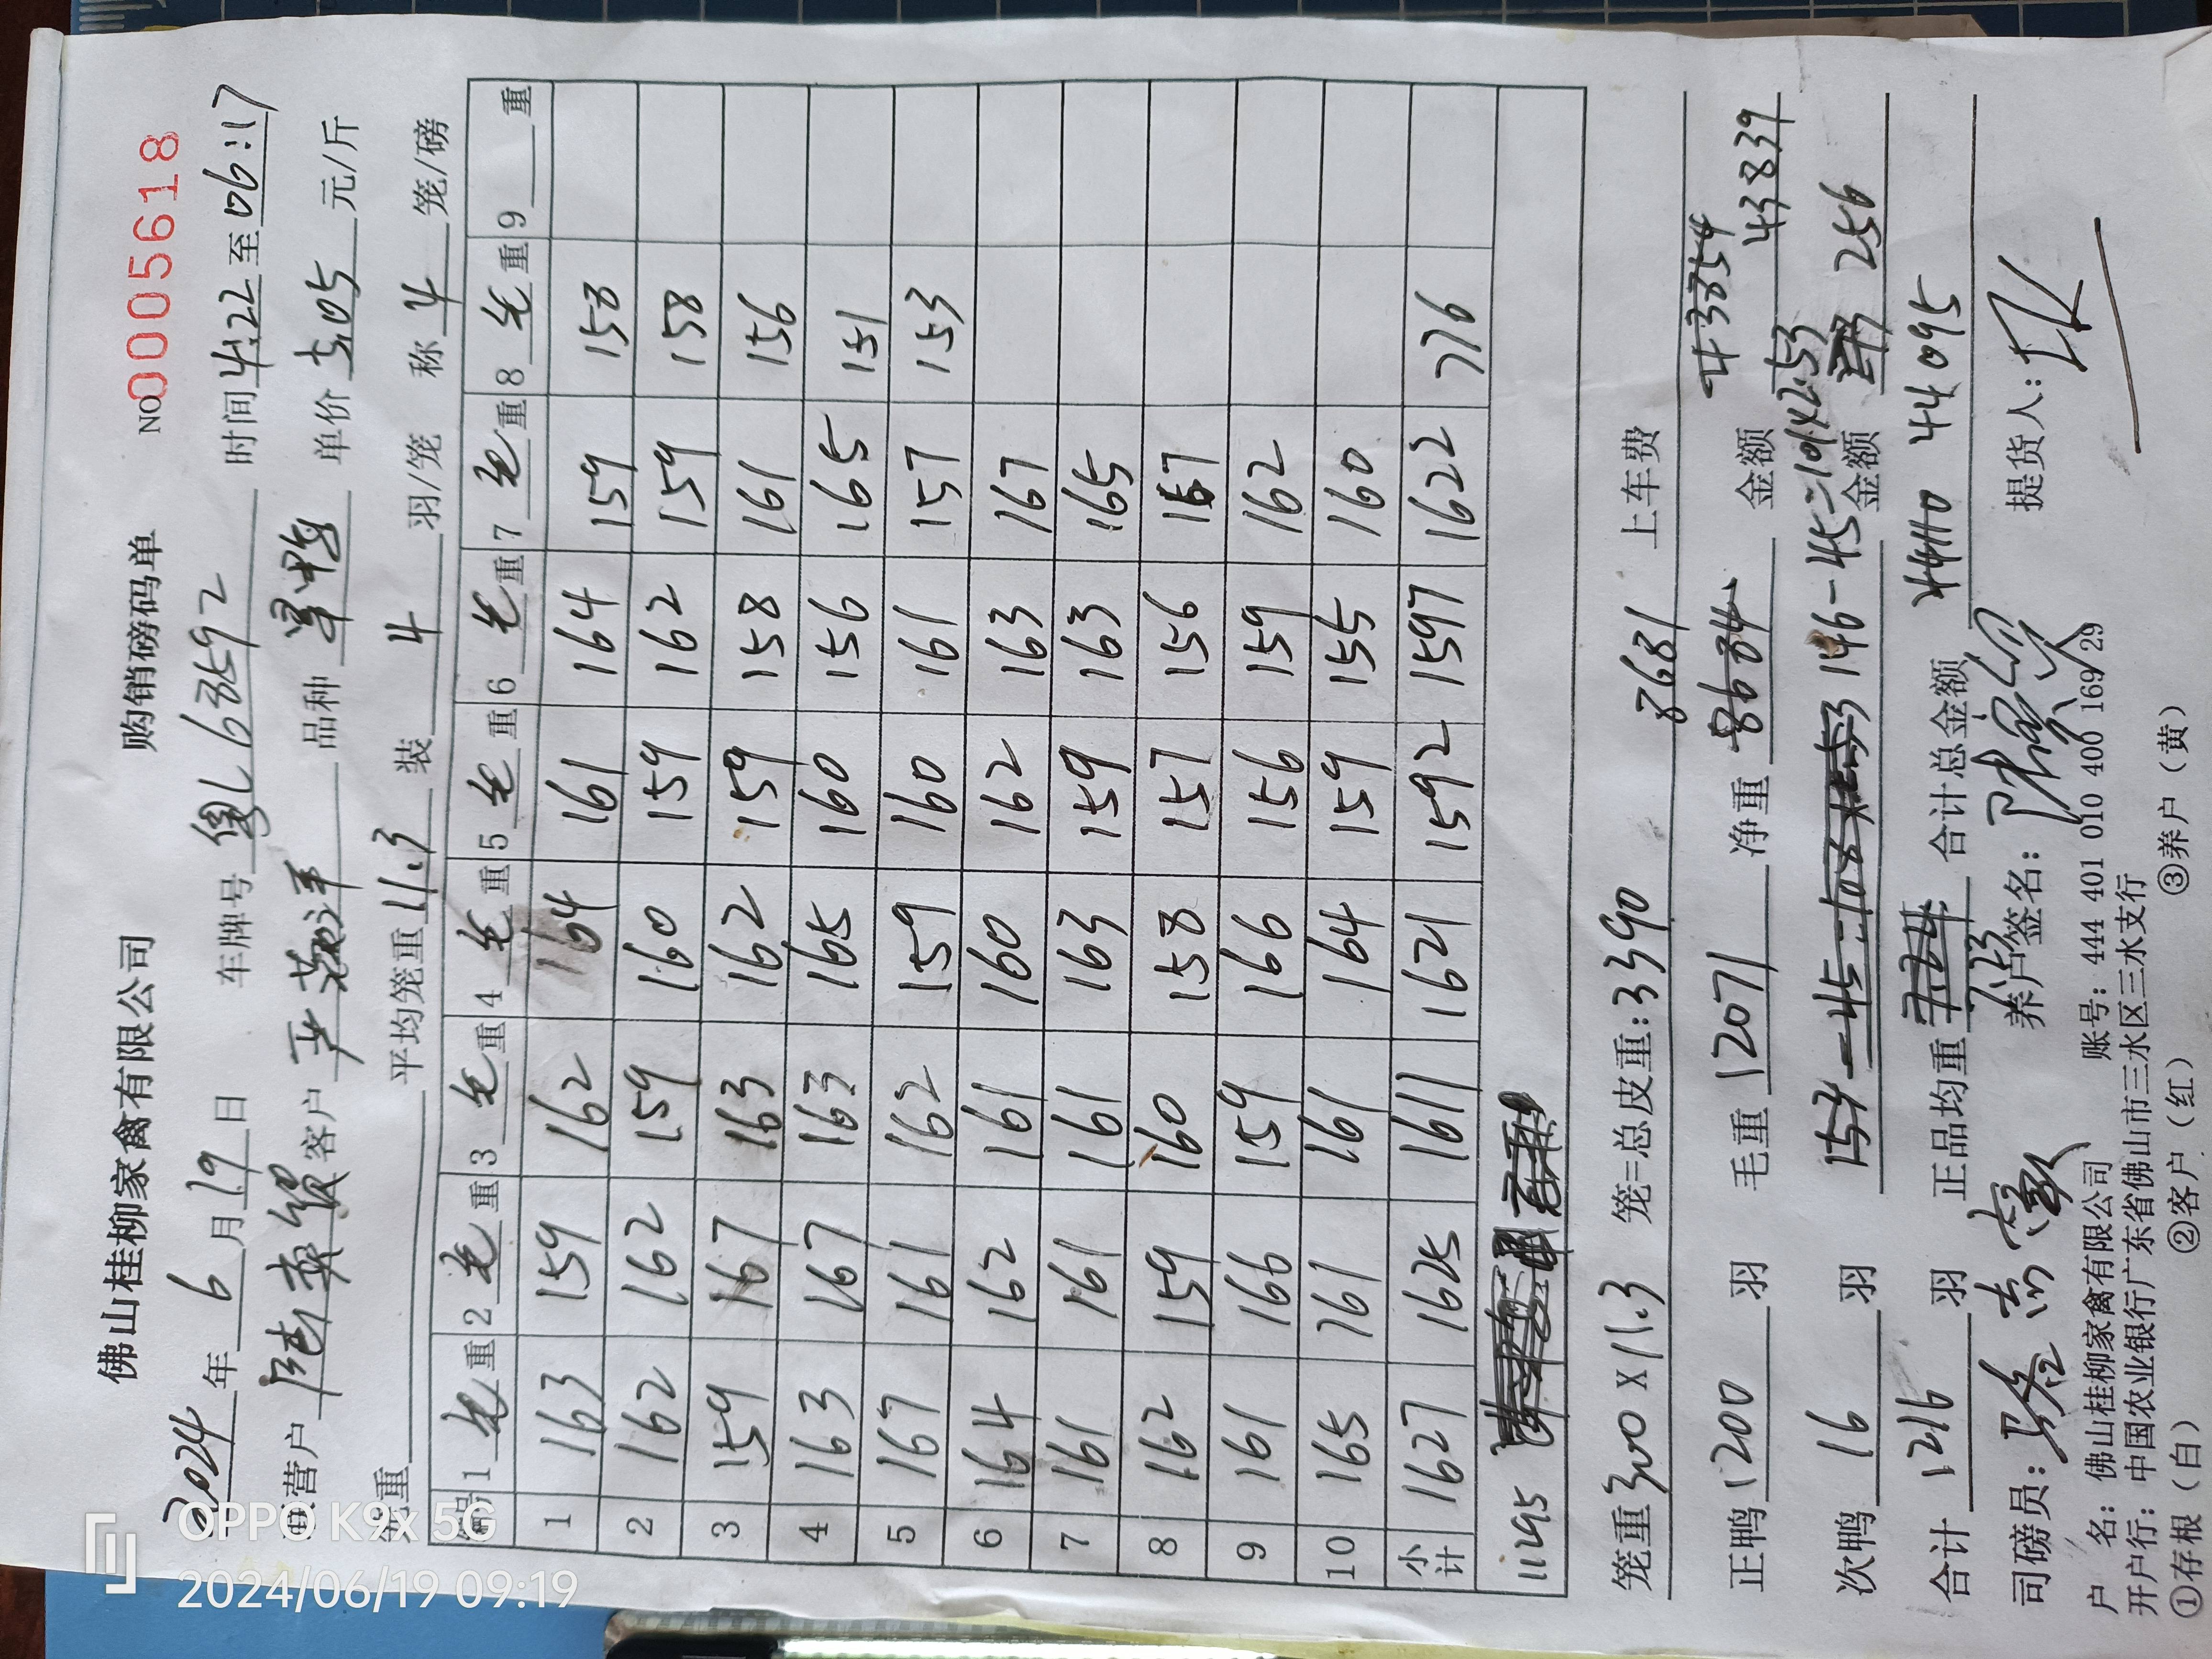 佛山桂柳家禽有限公司 购销磅码单 NO 0005618
2024年6月19日 车牌号 63592 时间4:22至06:17
联营户 客户 品种 单价5.05元/斤
笼重 平均笼重11.3 装4羽/笼 称4笼/磅
编号 1毛重 2毛重 3毛重 4毛重 5毛重 6毛重 7毛重 8毛重 9重
1 163 159 162 164 161 164 159 158
2 162 162 159 160 159 162 159 158
3 159 167 163 162 159 158 161 156
4 163 167 163 165 160 156 165 151
5 167 161 162 159 160 161 157 153
6 164 162 161 160 162 163 167
7 161 161 161 163 159 163 165
8 162 159 160 158 157 156 167
9 161 166 159 166 156 159 162
10 165 161 161 164 159 155 160
小计 1627 1625 1611 1621 1592 1597 1622 776
笼重300X11.3 笼=总皮重:3390 8681 上车费
正鸭1200羽 毛重12071 净重8684 金额43839
次鸭16羽 146-45=101X2.53 金额256
合计1216羽 正品均重7.23 合计总金额44110 44095
司磅员: 养户签名: 提货人:
户 名:佛山桂柳家禽有限公司 账号:444 401 010 400 169/29
开户行:中国农业银行广东省佛山市三水区三水支行
①存根(白) ②客户(红) ③养户(黄)
OPPO K9x 5G
2024/06/19 09:19